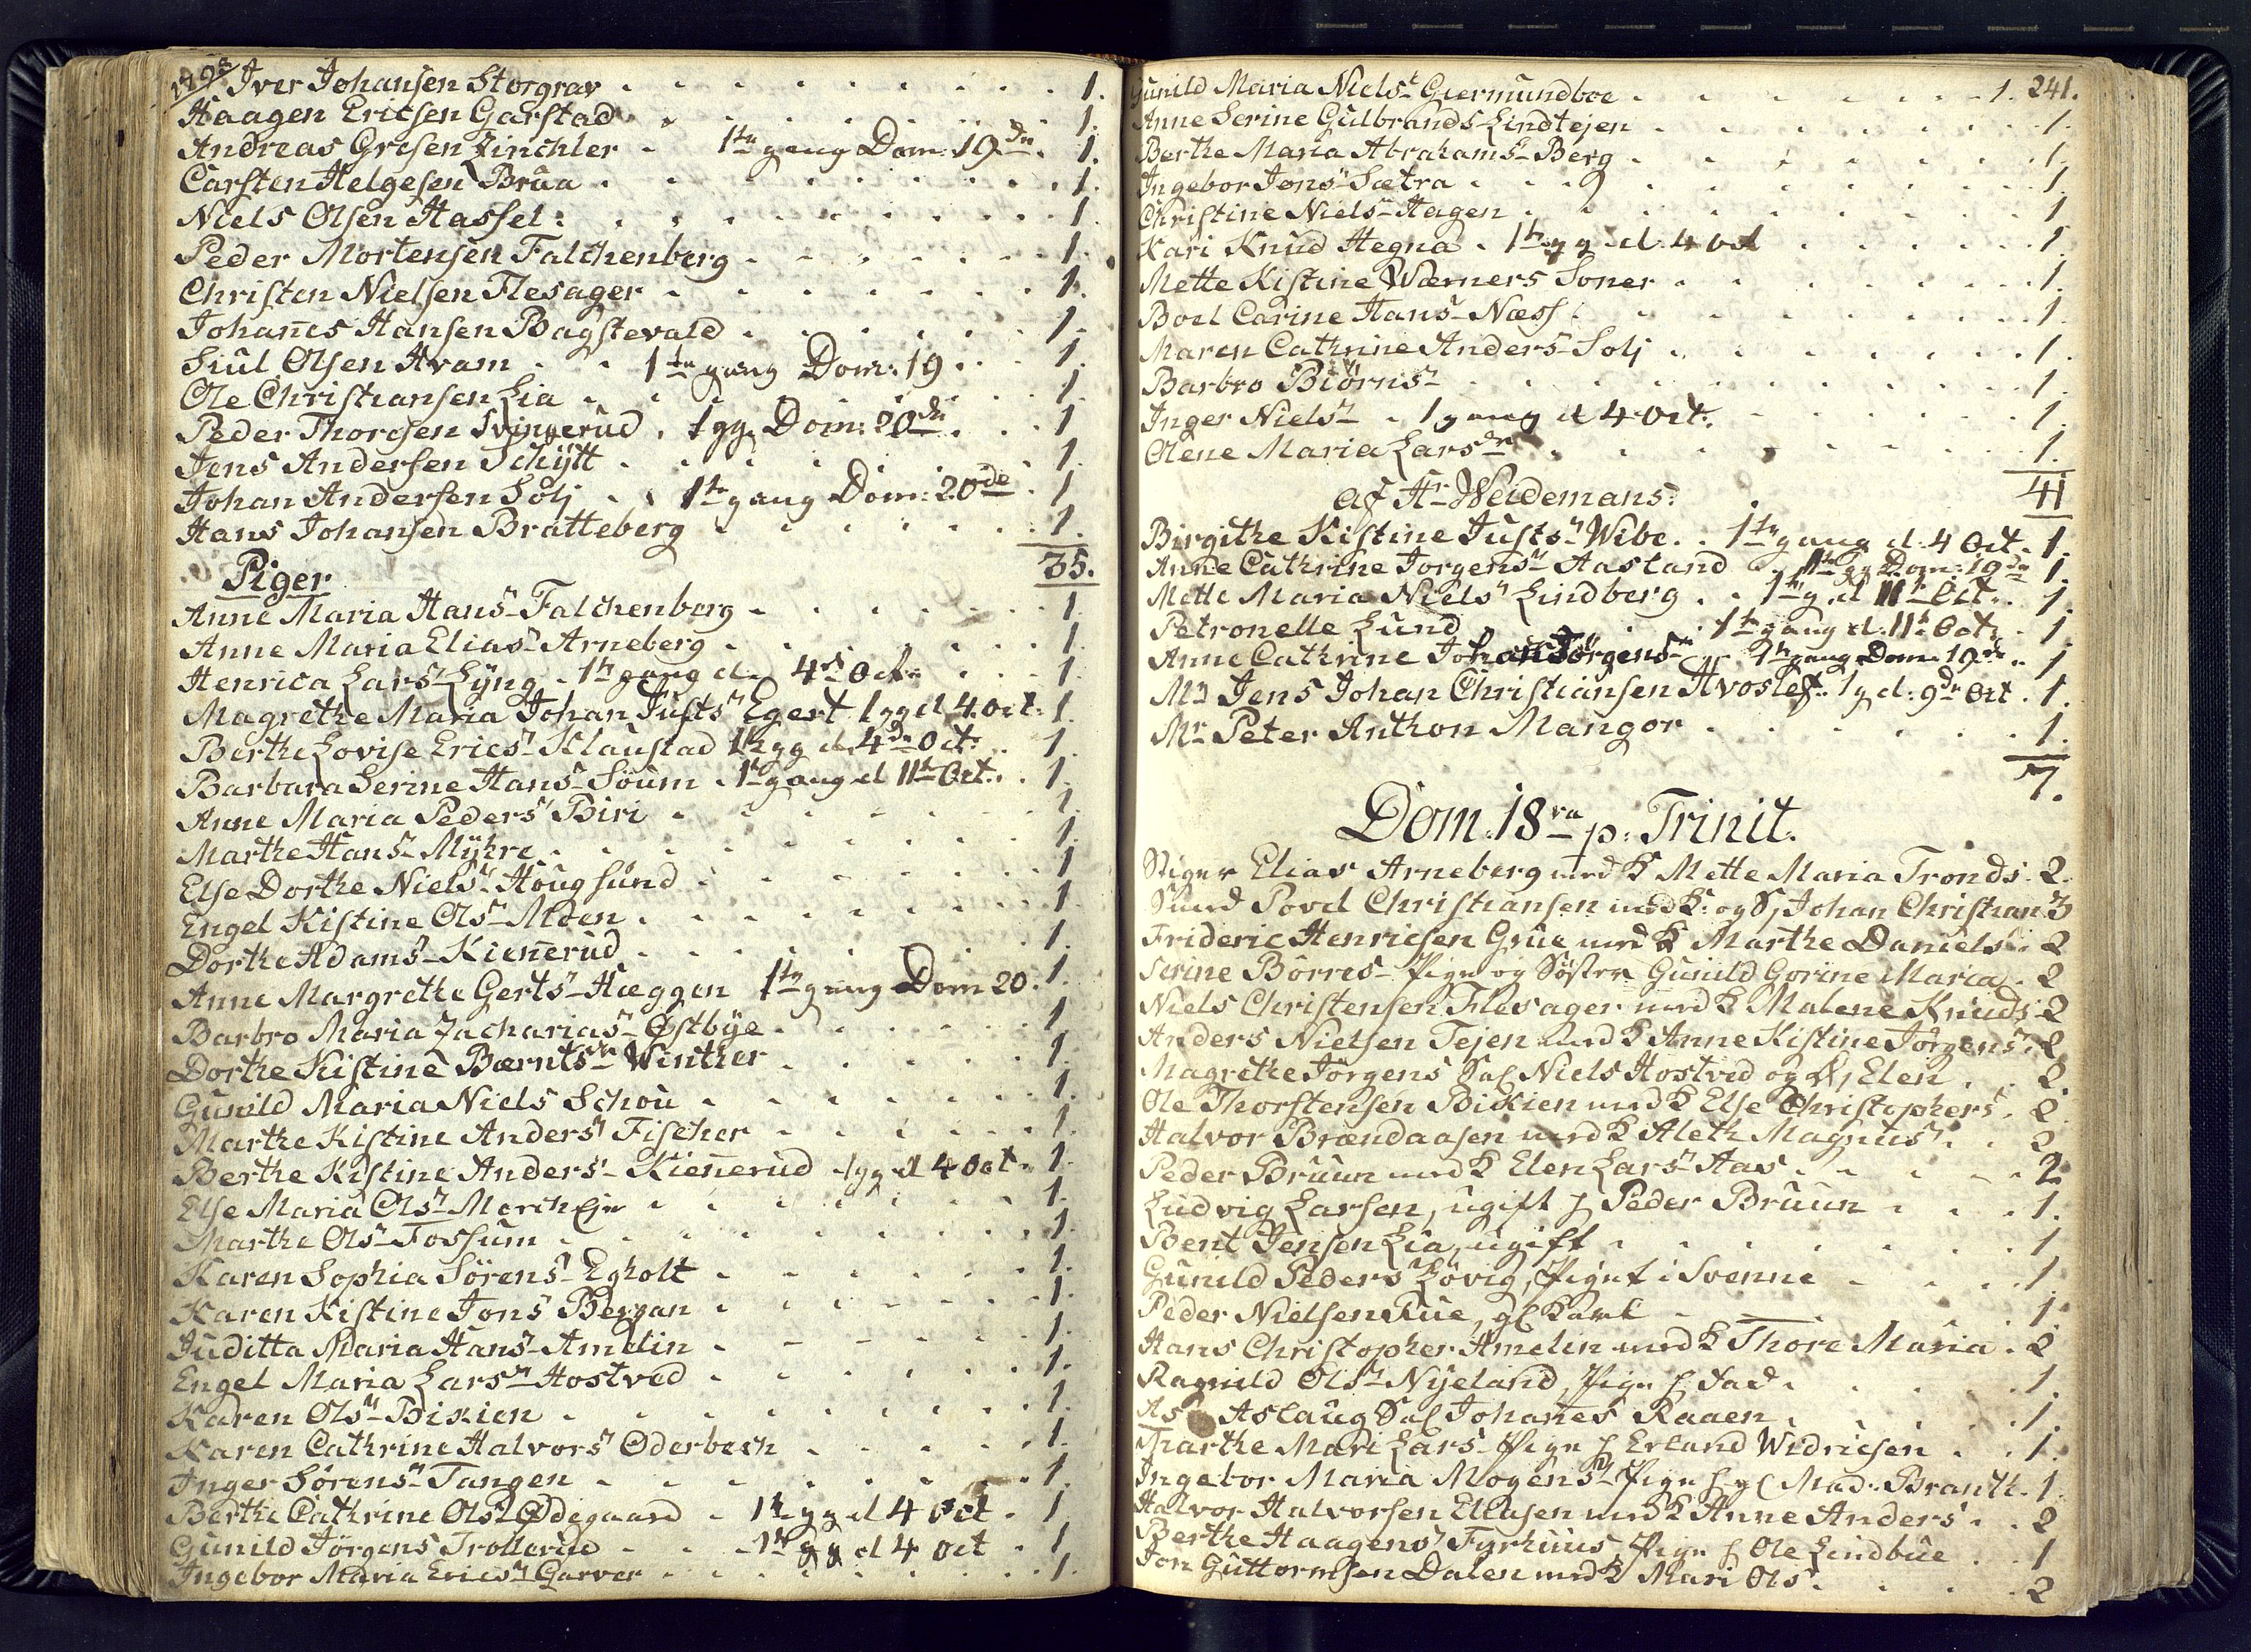 1793 Iver Johansen Storgrav . . . . 1.
Haagen Ericsen Garstad . . . . 1.
Andreas Gresen Zinchler . 1ste gang Dom: 19de . 1.
Carsten Helgesen Brua . . . . 1.
Niels Olsen Hassel . . . . 1.
Peder Mortensen Falchenberg . . . . 1.
Christen Nielsen Flesager . . . . 1.
Johan̄es Hansen Bagstevald . . . . 1.
Siul Olsen Hvam . . 1ste gang Dom: 19 . . 1.
Ole Christiansen Lia . . . . 1.
Peder Thoresen Svingerud . 1 gg. Dom: 20de . . 1
Jens Andersen Schÿtt . . . . 1.
Johan Andersen Solj . . 1ste gang Dom: 20de . 1
Hans Johansen Bratteberg . . . . 1.
Piger 35.
Anne Maria Hans- Falchenberg . . . . 1.
Anne Maria Elias- Arneberg . . . . 1.
Henrica Lars- Lÿng . 1ste gang d. 4de Oct: . . 1
Magrethe Maria Johan Justs Egert 1 gg d 4. Oct. 1.
Berthe Lovise Erics- Klaustad 1ste gg d. 4de Oct: . 1
Barbara Serine Hans- Soum . 1ste gang d 11te Oct. . 1.
Anne Maria Peders Biri . . . . 1
Marthe Hans- Mÿhre . . . . 1.
Else Dorthe Niels- Hougsund . . . . 1
Engel Kistine Ols- Alden . . . . 1.
Dorthe Adams- Kien̄erud . . . . 1.
Anne Margrethe Gerts- Hæggen 1ste gang Dom 20 . 1.
Barbro Maria Zacharias- Østbÿe . . . . 1
Dorthe Kistine Bærnts- Winther . . . . 1.
Gunild Maria Niels Schou . . . . 1.
Marthe Kistine Anders Fischer . . . . 1.
Berthe Kistine Anders- Kien̄erud 1 gg d 4 Oct . 1.
Else Maria Ols- March . . . . 1.
Marthe Ols- Fossum . . . . 1.
Karen Sophia Sörens- Egholt . . . . 1.
Karen Kistine Jons Bergan . . . . 1.
Juditta Maria Hans- Amelin . . . . 1.
Engel Maria Lars- Hostved . . . . 1.
Karen Ols- Bikien . . . . 1.
Karen Cathrine Halvors Oderbech . . . . 1.
Inger Sörens- Tangen . . . . 1.
Berthe Cathrine Ols- Ødegaard . 1ste gg d 4 Oct . 1
Gunild Jörgens Trollerud . . . 1ste gg d 4 Oct . 1
Ingebor Maria Erics- Garver . . . . 1.
Gunild Maria Niels- Giermundboe . . . . 1. 241.
Anne Serine Gulbrands- Lindtejen . . . . 1.
Berthe Maria Abrahams- Berg . . . . 1.
Ingebor Jens- Sætra . . . . 1.
Christine Niels- Hagen . . . . 1
Kari Knud Hegna . 1ste gg d. 4 Oct . . . 1
Mette Kistine Wærners Soner . . . . 1.
Boel Carine Hans- Næss . . . . 1.
Maren Cathrine Anders- Solj . . . . 1.
Barbro Biörns- . . . . 1.
Inger Niels- . 1 gang d 4 Oct: . . . 1.
Olene Maria Lars- . . . . 1.
af Hr Weidemans: 41
Birgithe Kistine Justs- Wibe . . 1ste gang d. 4 Oct . 1.
Anne Cathrine Jorgens- Aasland 1ste gg Dom: 19de 1.
Mette Maria Niels- Lindberg . . 1ste g. d 11te Oct. . 1
Petronelle Lund . . 1ste gang d. 11te Oct. . 1
Anne Cathrine Johan Jörgens- 1ste gang Dom. 19de . 1
Mr Jens Johan Christiansen Hvoslef . 1 g d: 9de Oct . 1.
Mr Peter Anthon Mangor . . . . 1.
7.
Dom. 18va p: Trinit.
Stiger Elias Arneberg med K Mette Maria Tronds . 2.
Smed Povel Christiansen med K. og S, Johan Christian 3
Frideric Henricsen Grue med K Marthe Daniels . 2
Serine Börres- Pige og Söster Gunild Gorine Maria . 2
Niels Christensen Flesager med K Malene Knuds . 2
Anders Nielsen Tejen med K Anne Kistine Jörgens . 2
Magrethe Jörgens Sal Niels Hostved og D, Elen . . 2.
Ole Thorstensen Bikien med K Else Christophers . 2
Halvor Brændaasen med K Aleth Magnus . . 2
Peder Bruun med K Elen Lars- Aas . . . 2
Ludvig Larsen, ugift h Peder Bruun . . . 1.
Bent Jensen Lia, ugift . . . . 1
Gunild Peders Hövig, Pige f i Svenne . . . 1
Peder Nielsen Rue, gl Karl . . . 1.
Hans Christopher Amelin med K Thore Maria . 2
Ragnild Ols- Nÿeland, Pige h Fad . . . 1
As Aslaug Sal Johan̄es Raaen . . . . 1.
Marthe Mari Lars- Pige h Erland Widricsen . . 1.
Ingebor Maria Mogens- Pige h gl Mad. Branth . 1.
Halvor Halvorsen Eliasen med K Anne Anders . . 2
Berthe Haagens Fyrhuus Pige h Ole Lindbue . . 1
Jon Guttormsen Dalen med K Mari Ols . . . 2